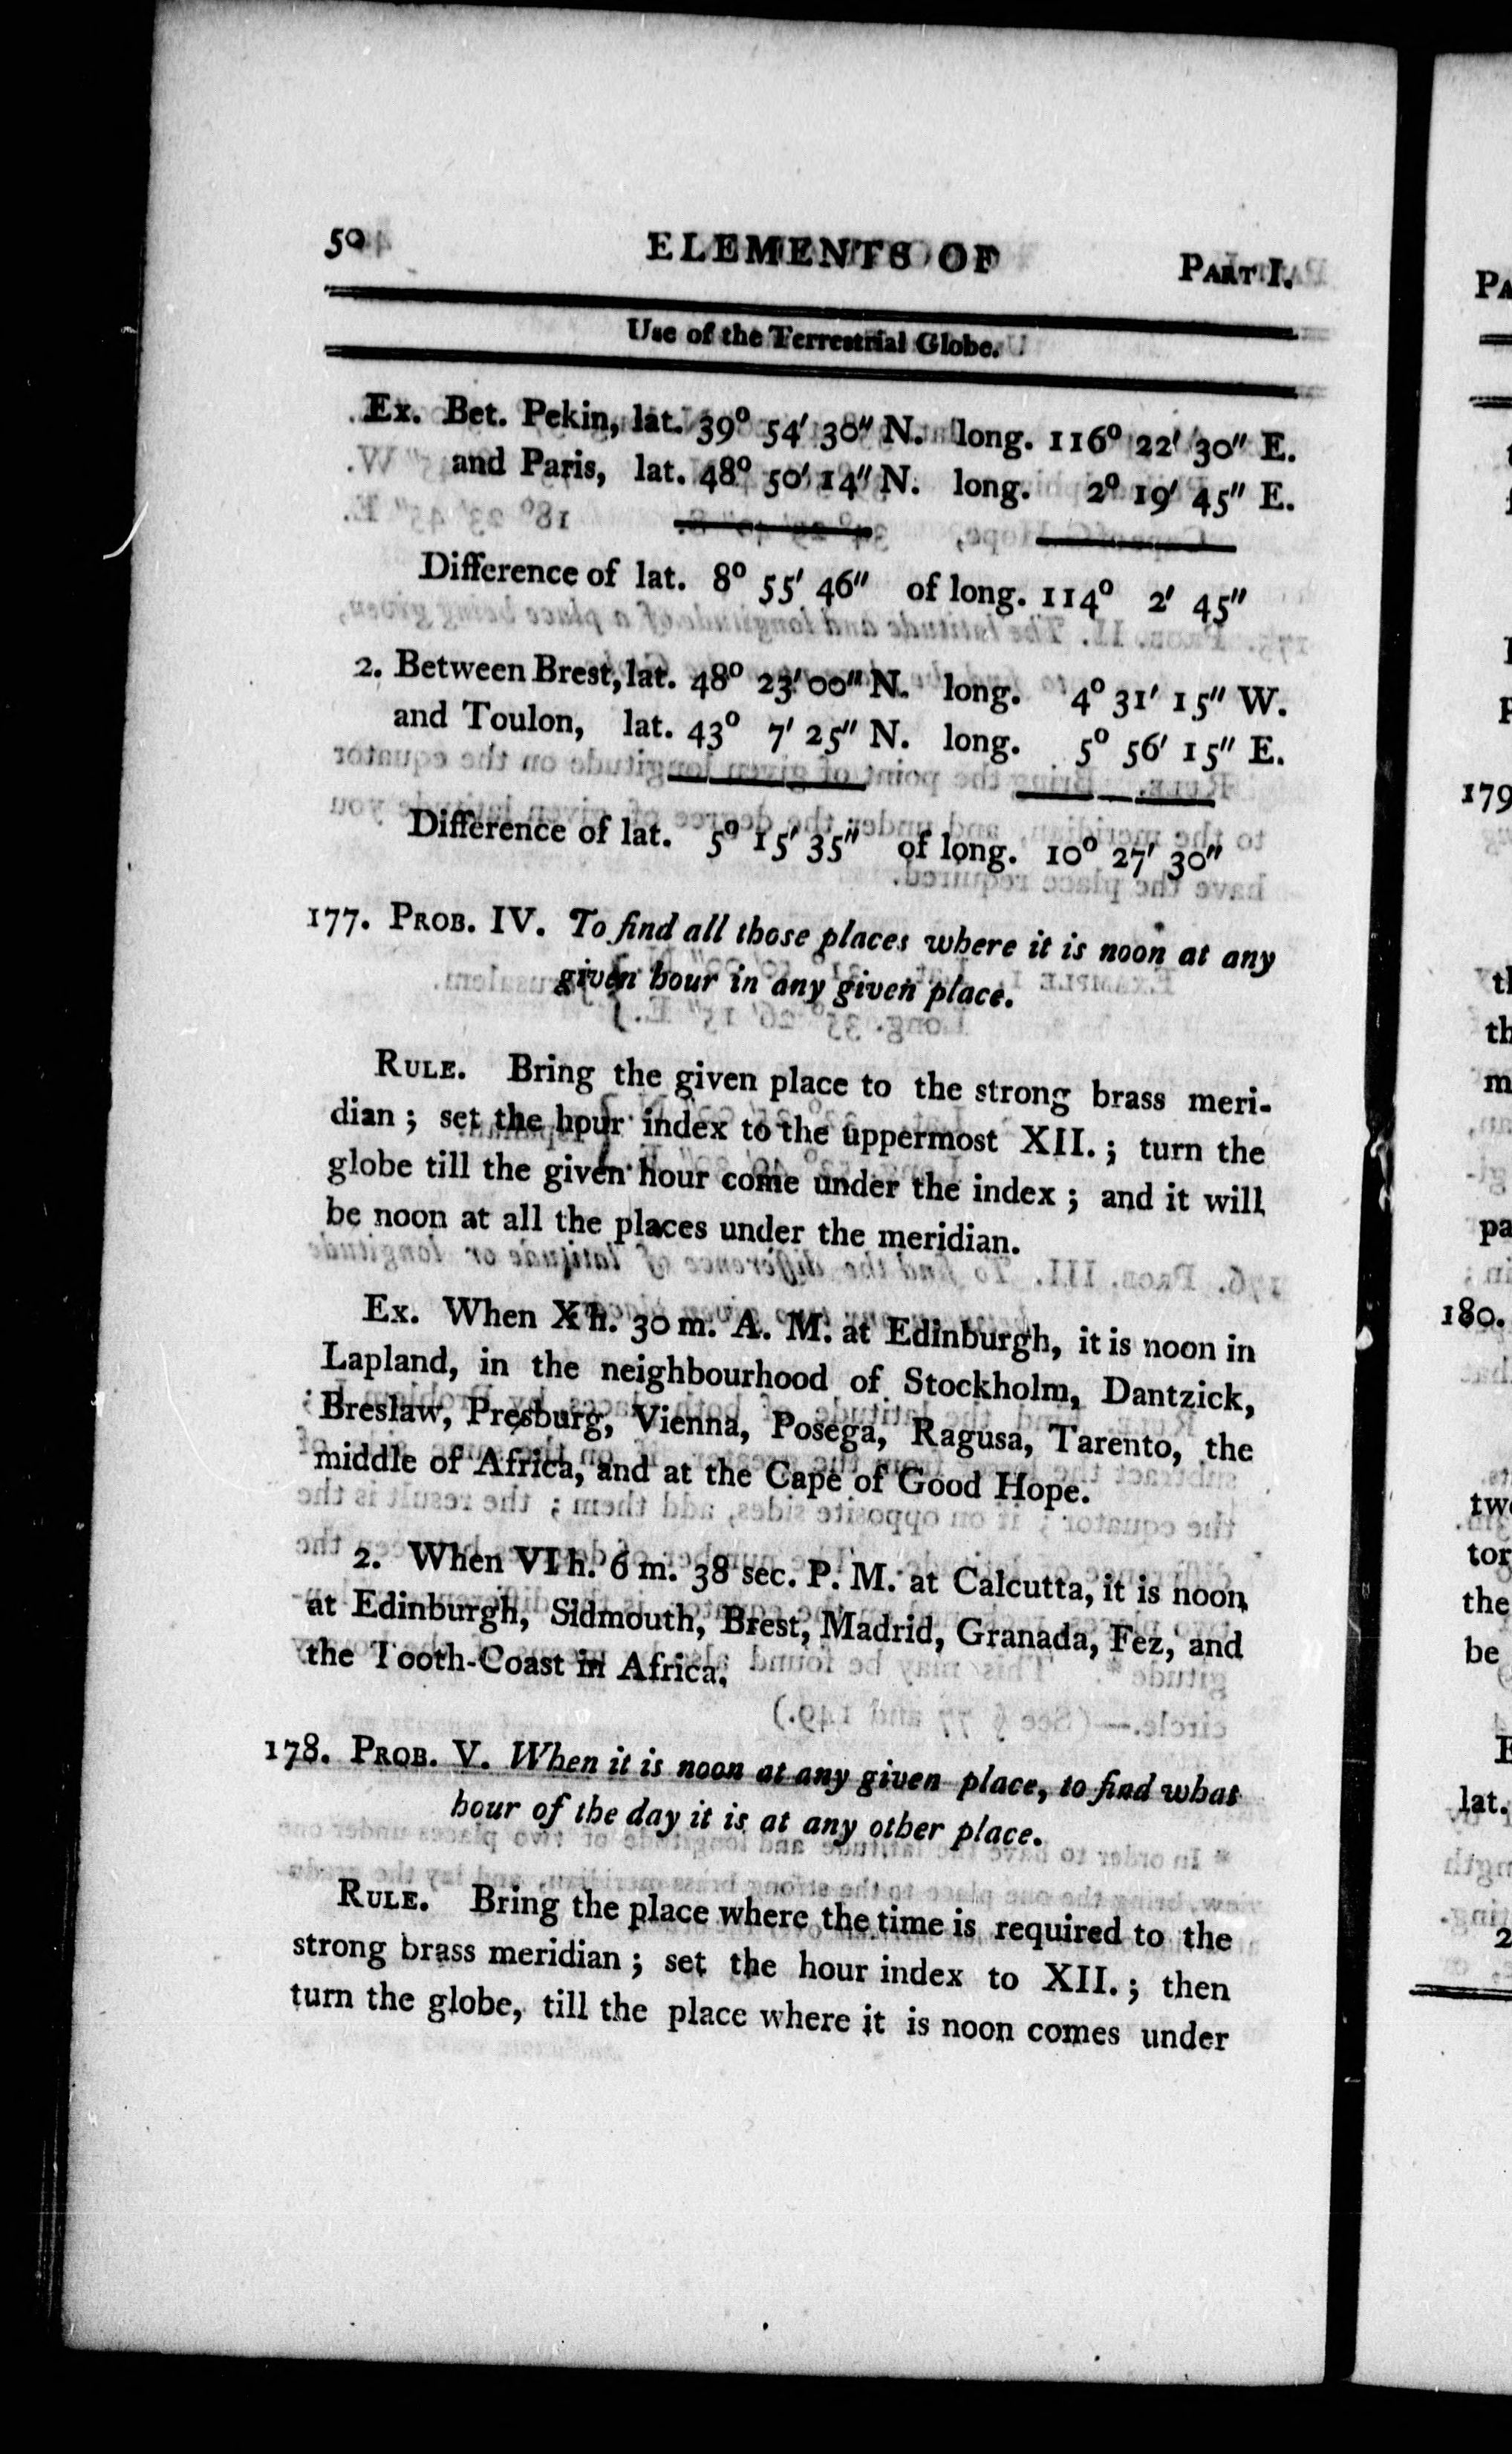 50 ELEMENTS OF PART I.
Use of the Terrestrial Globe.
Ex. Bet. Pekin, lat. 39° 54′ 30″ N. long. 116° 22′ 30″ E.
and Paris, lat. 48° 50′ 14″ N. long. 2° 19′ 45″ E.
Difference of lat. 8° 55′ 46″ of long. 114° 2′ 45″
2. Between Brest, lat. 48° 23′ 00″ N. long. 4° 31′ 15″ W.
and Toulon, lat. 43° 7′ 25″ N. long. 5° 56′ 15″ E.
Difference of lat. 5° 15′ 35″ of long. 10° 27′ 30″
177. PROB. IV. To find all those places where it is noon at any
given hour in any given place.
RULE. Bring the given place to the strong brass meri-
dian ; set the hour index to the uppermost XII. ; turn the
globe till the given hour come under the index ; and it will
be noon at all the places under the meridian.
Ex. When X h. 30 m. A. M. at Edinburgh, it is noon in
Lapland, in the neighbourhood of Stockholm, Dantzick,
Breslaw, Presburg, Vienna, Posega, Ragusa, Tarento, the
middle of Africa, and at the Cape of Good Hope.
2. When VI h. 6 m. 38 sec. P. M. at Calcutta, it is noon
at Edinburgh, Sidmouth, Brest, Madrid, Granada, Fez, and
the Tooth-Coast in Africa.
178. PROB. V. When it is noon at any given place, to find what
hour of the day it is at any other place.
RULE. Bring the place where the time is required to the
strong brass meridian ; set the hour index to XII. ; then
turn the globe, till the place where it is noon comes under
179
180.
the
be
lat.
2